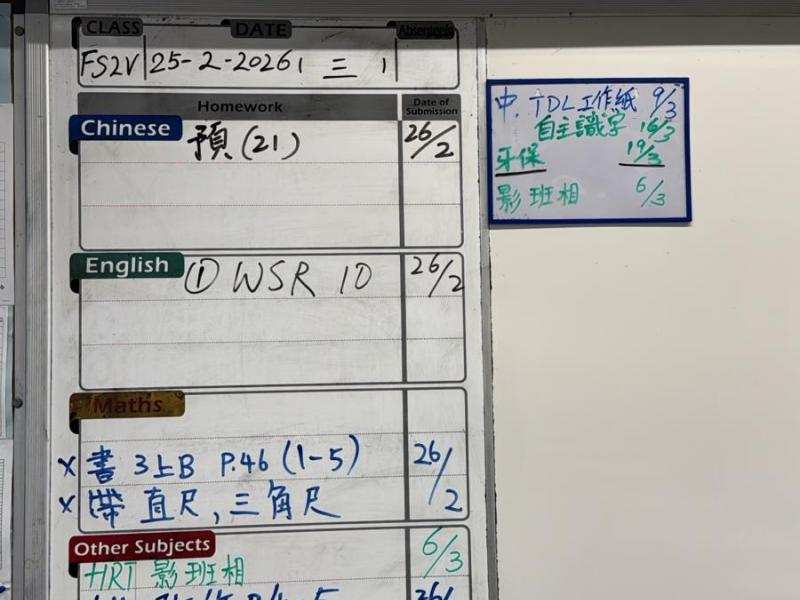 CLASS DATE Absentees
FS2V 25-2-2026, 三
Homework Date of Submission
Chinese
預(21) 26/2
English
① WSR 10 26/2
Maths
x 書 3上B P.46 (1-5) 26/2
x 帶 直尺, 三角尺
Other Subjects
HRT 影班相 6/3
中. TDL工作紙 9/3
自主識字 16/3
牙保 19/3
影班相 6/3